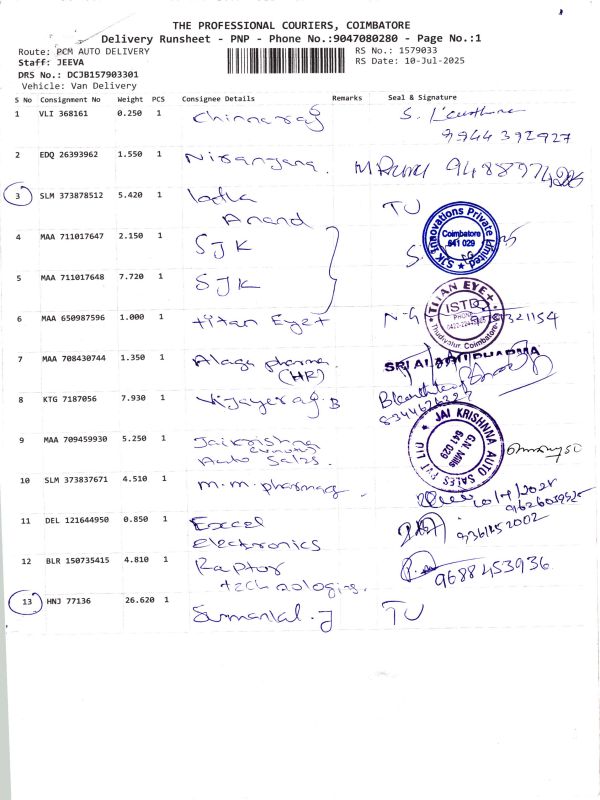 THE PROFESSIONAL COURIERS, COIMBATORE
Delivery Runsheet - PNP - Phone No.:9047080280 - Page No.:1
Route: PCM AUTO DELIVERY
RS No.: 1579033
Staff: JEEVA
RS Date: 10-Jul-2025
DRS No.: DCJB157903301
Vehicle: Van Delivery
S No Consignment No Weight PCS Consignee Details Remarks Seal & Signature
1 VLI 368161 0.250 1 Chinnaraj S.
9944392927
2 EDQ 26393962 1.550 1 Niranjana.
3 SLM 373878512 5.420 1 TU
Anand
4 MAA 711017647 2.150 1 SJK
SJK Innovations Private Limited
Coimbatore
641 029
5 MAA 711017648 7.720 1 SJK
6 MAA 650987596 1.000 1 titan Eye+
TITAN EYE+
ISTD
PHONE
Thudiyalur, Coimbatore
7 MAA 708430744 1.350 1 Alaga pharma.
(HR)
8 KTG 7187056 7.930 1 Vijayaraj B
9 MAA 709459930 5.250 1 Jaikrishna
Auto Sales.
JAI KRISHNNA AUTO SALES PVT LTD
G.N Mills
641 029
10 SLM 373837671 4.510 1 m.m.pharmacy.
11 DEL 121644950 0.850 1 Excel
Electronics
12 BLR 150735415 4.810 1 Raptor 9688453936
technologies.
13 HNJ 77136 26.620 1 TU